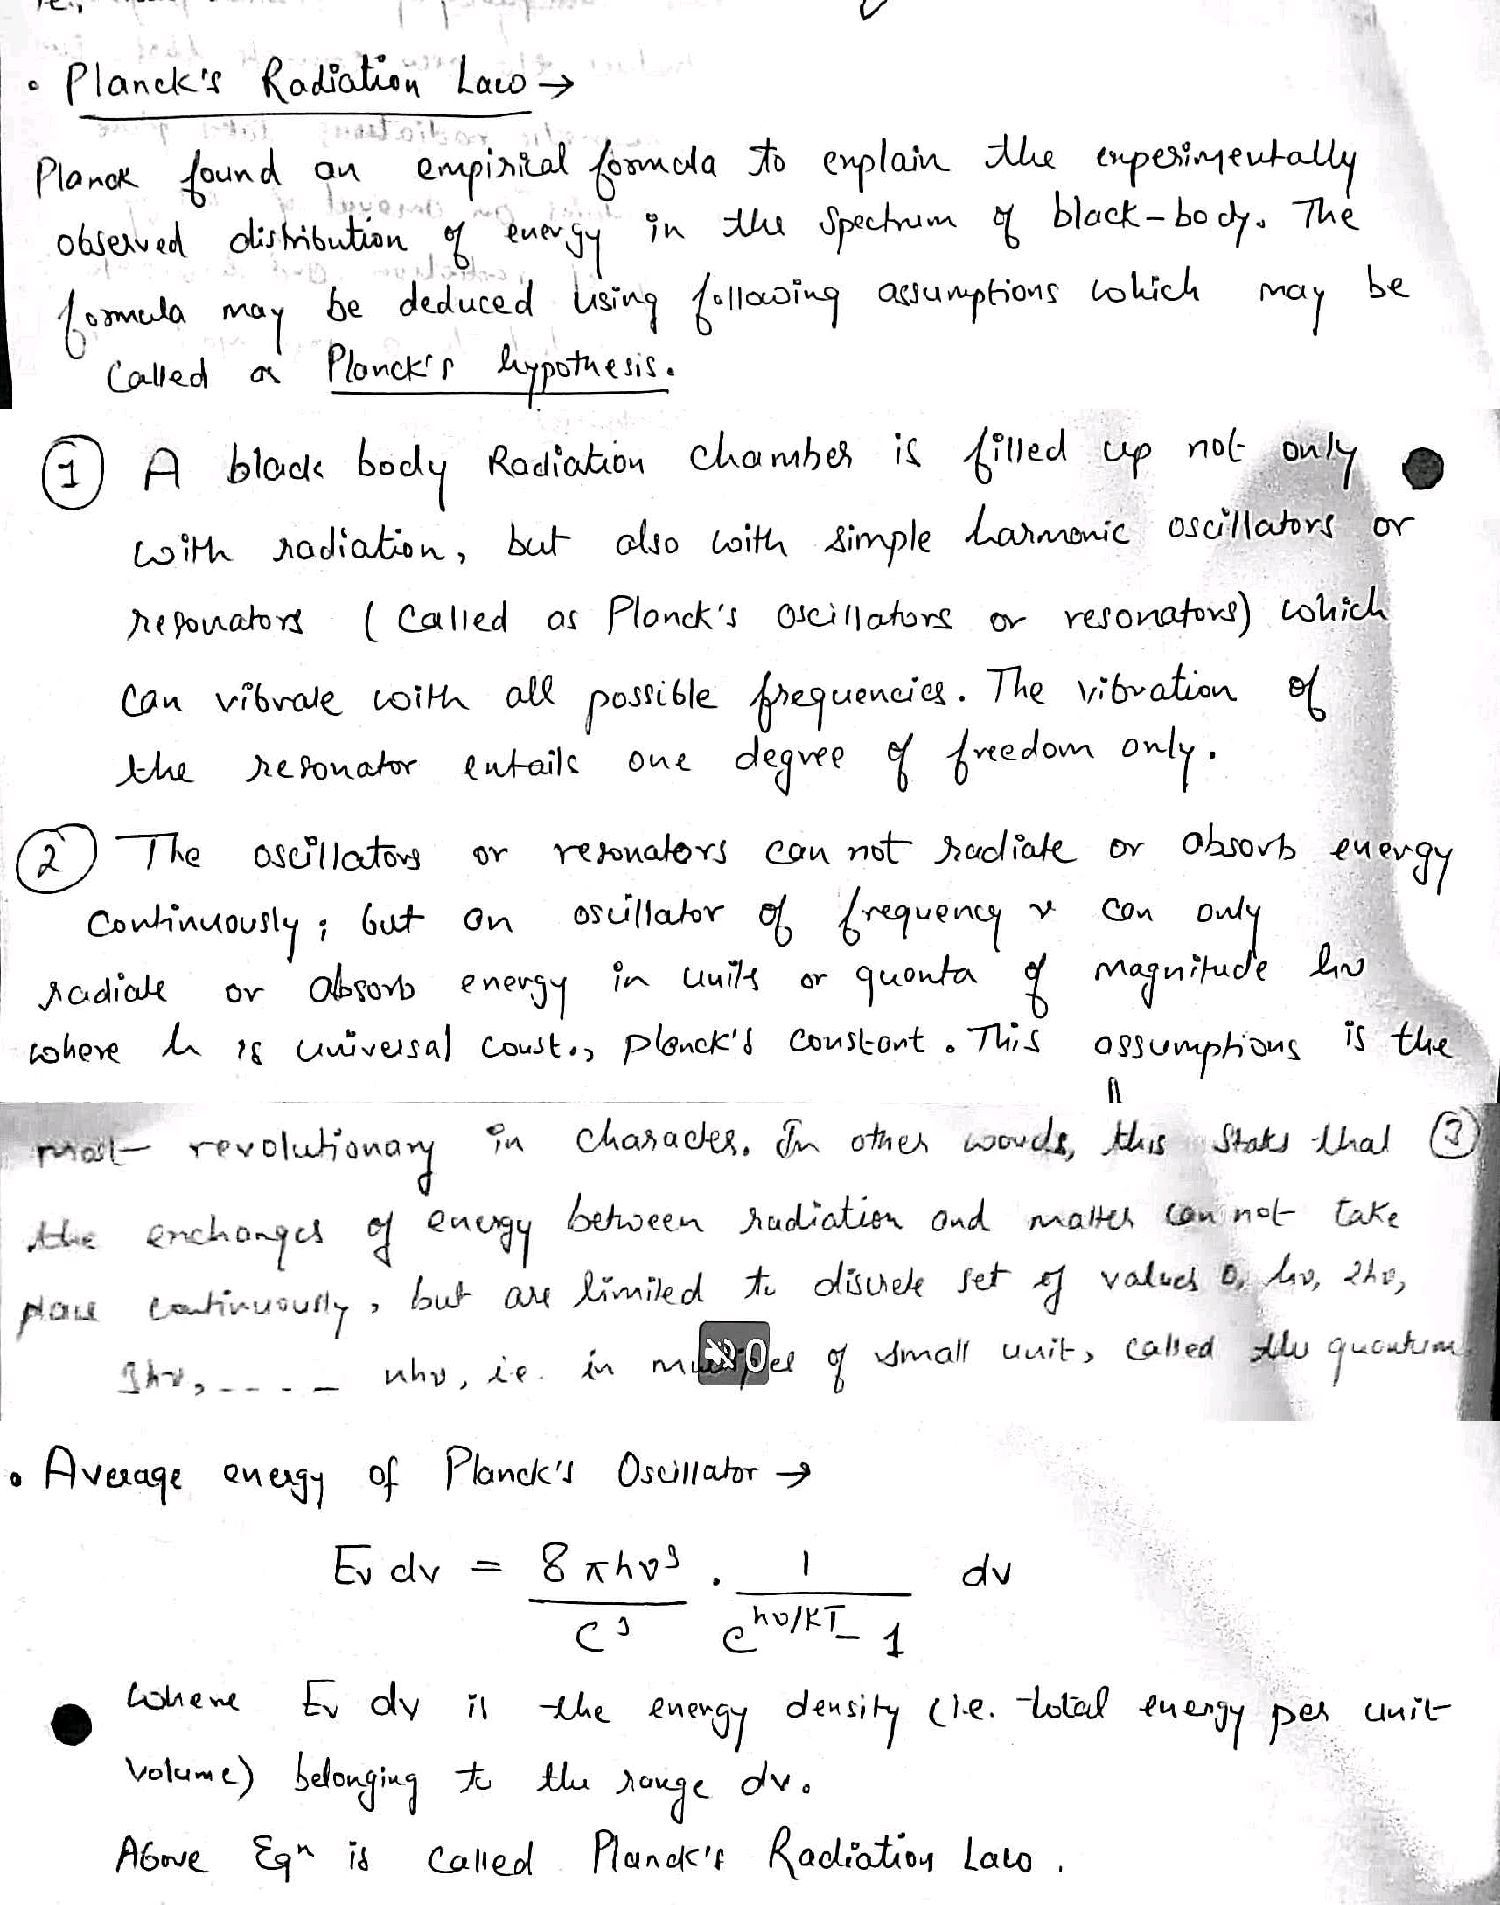 • Planck's Radiation Law →
Planck found an empirical formula to explain the experimentally
observed distribution of energy in the spectrum of black-body. The
formula may be deduced using following assumptions which may be
Called as Planck's hypothesis.
1 A black body Radiation chamber is filled up not only
with radiation, but also with simple harmonic oscillators or
resonators (Called as Planck's oscillators or resonators) which
can vibrate with all possible frequencies. The vibration of
the resonator entails one degree of freedom only.
2 The oscillators or resonators can not radiate or absorb energy
continuously; but an oscillator of frequency ν can only
radiate or absorb energy in units or quanta of magnitude hν
where h is universal const., planck's constant. This assumptions is the
most revolutionary in character. In other words, this states that 3
the exchanges of energy between radiation and matter can not take
place continuously, but are limited to discrete set of values 0, hν, 2hν,
3hν, ---- nhν, i.e. in of small unit, called the quantum
• Average energy of Planck's Oscillator →
Eν dν = 8πhν³/c³ · 1/(e^(hν/kT) - 1) dν
where Eν dν is the energy density (i.e. total energy per unit
volume) belonging to the range dν.
Above Eqⁿ is called Planck's Radiation Law.